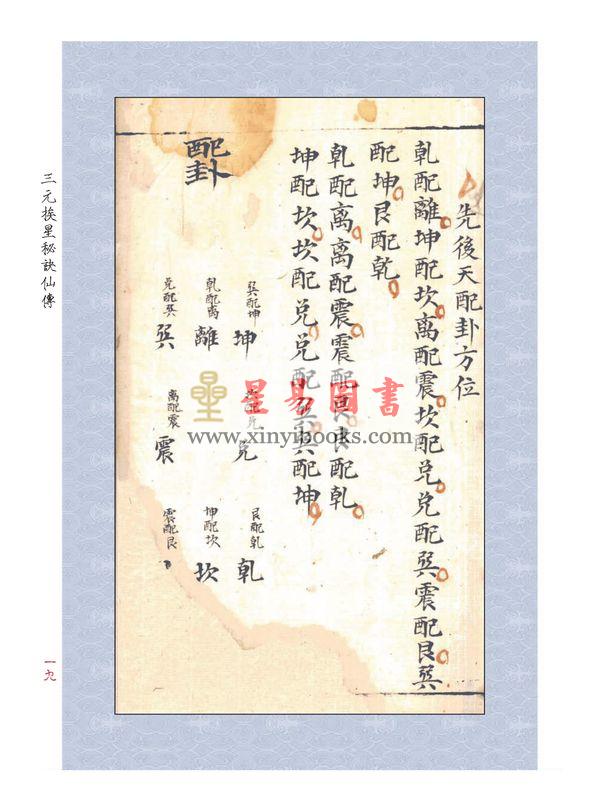 先後天配卦方位
乹配離坤配坎离配震坎配兑兑配巽震配艮巽
配坤艮配乹
乹配离离配震震配艮艮配乹
坤配坎坎配兑兑配巽巽配坤
配卦
巽配坤
坤
坎配兑
兑
艮配乹
乹
乹配离
離
坤配坎
坎
兑配巽
巽
离配震
震
震配艮
星易圖書
www.xinyibooks.com
三元挨星秘訣仙傳
一九